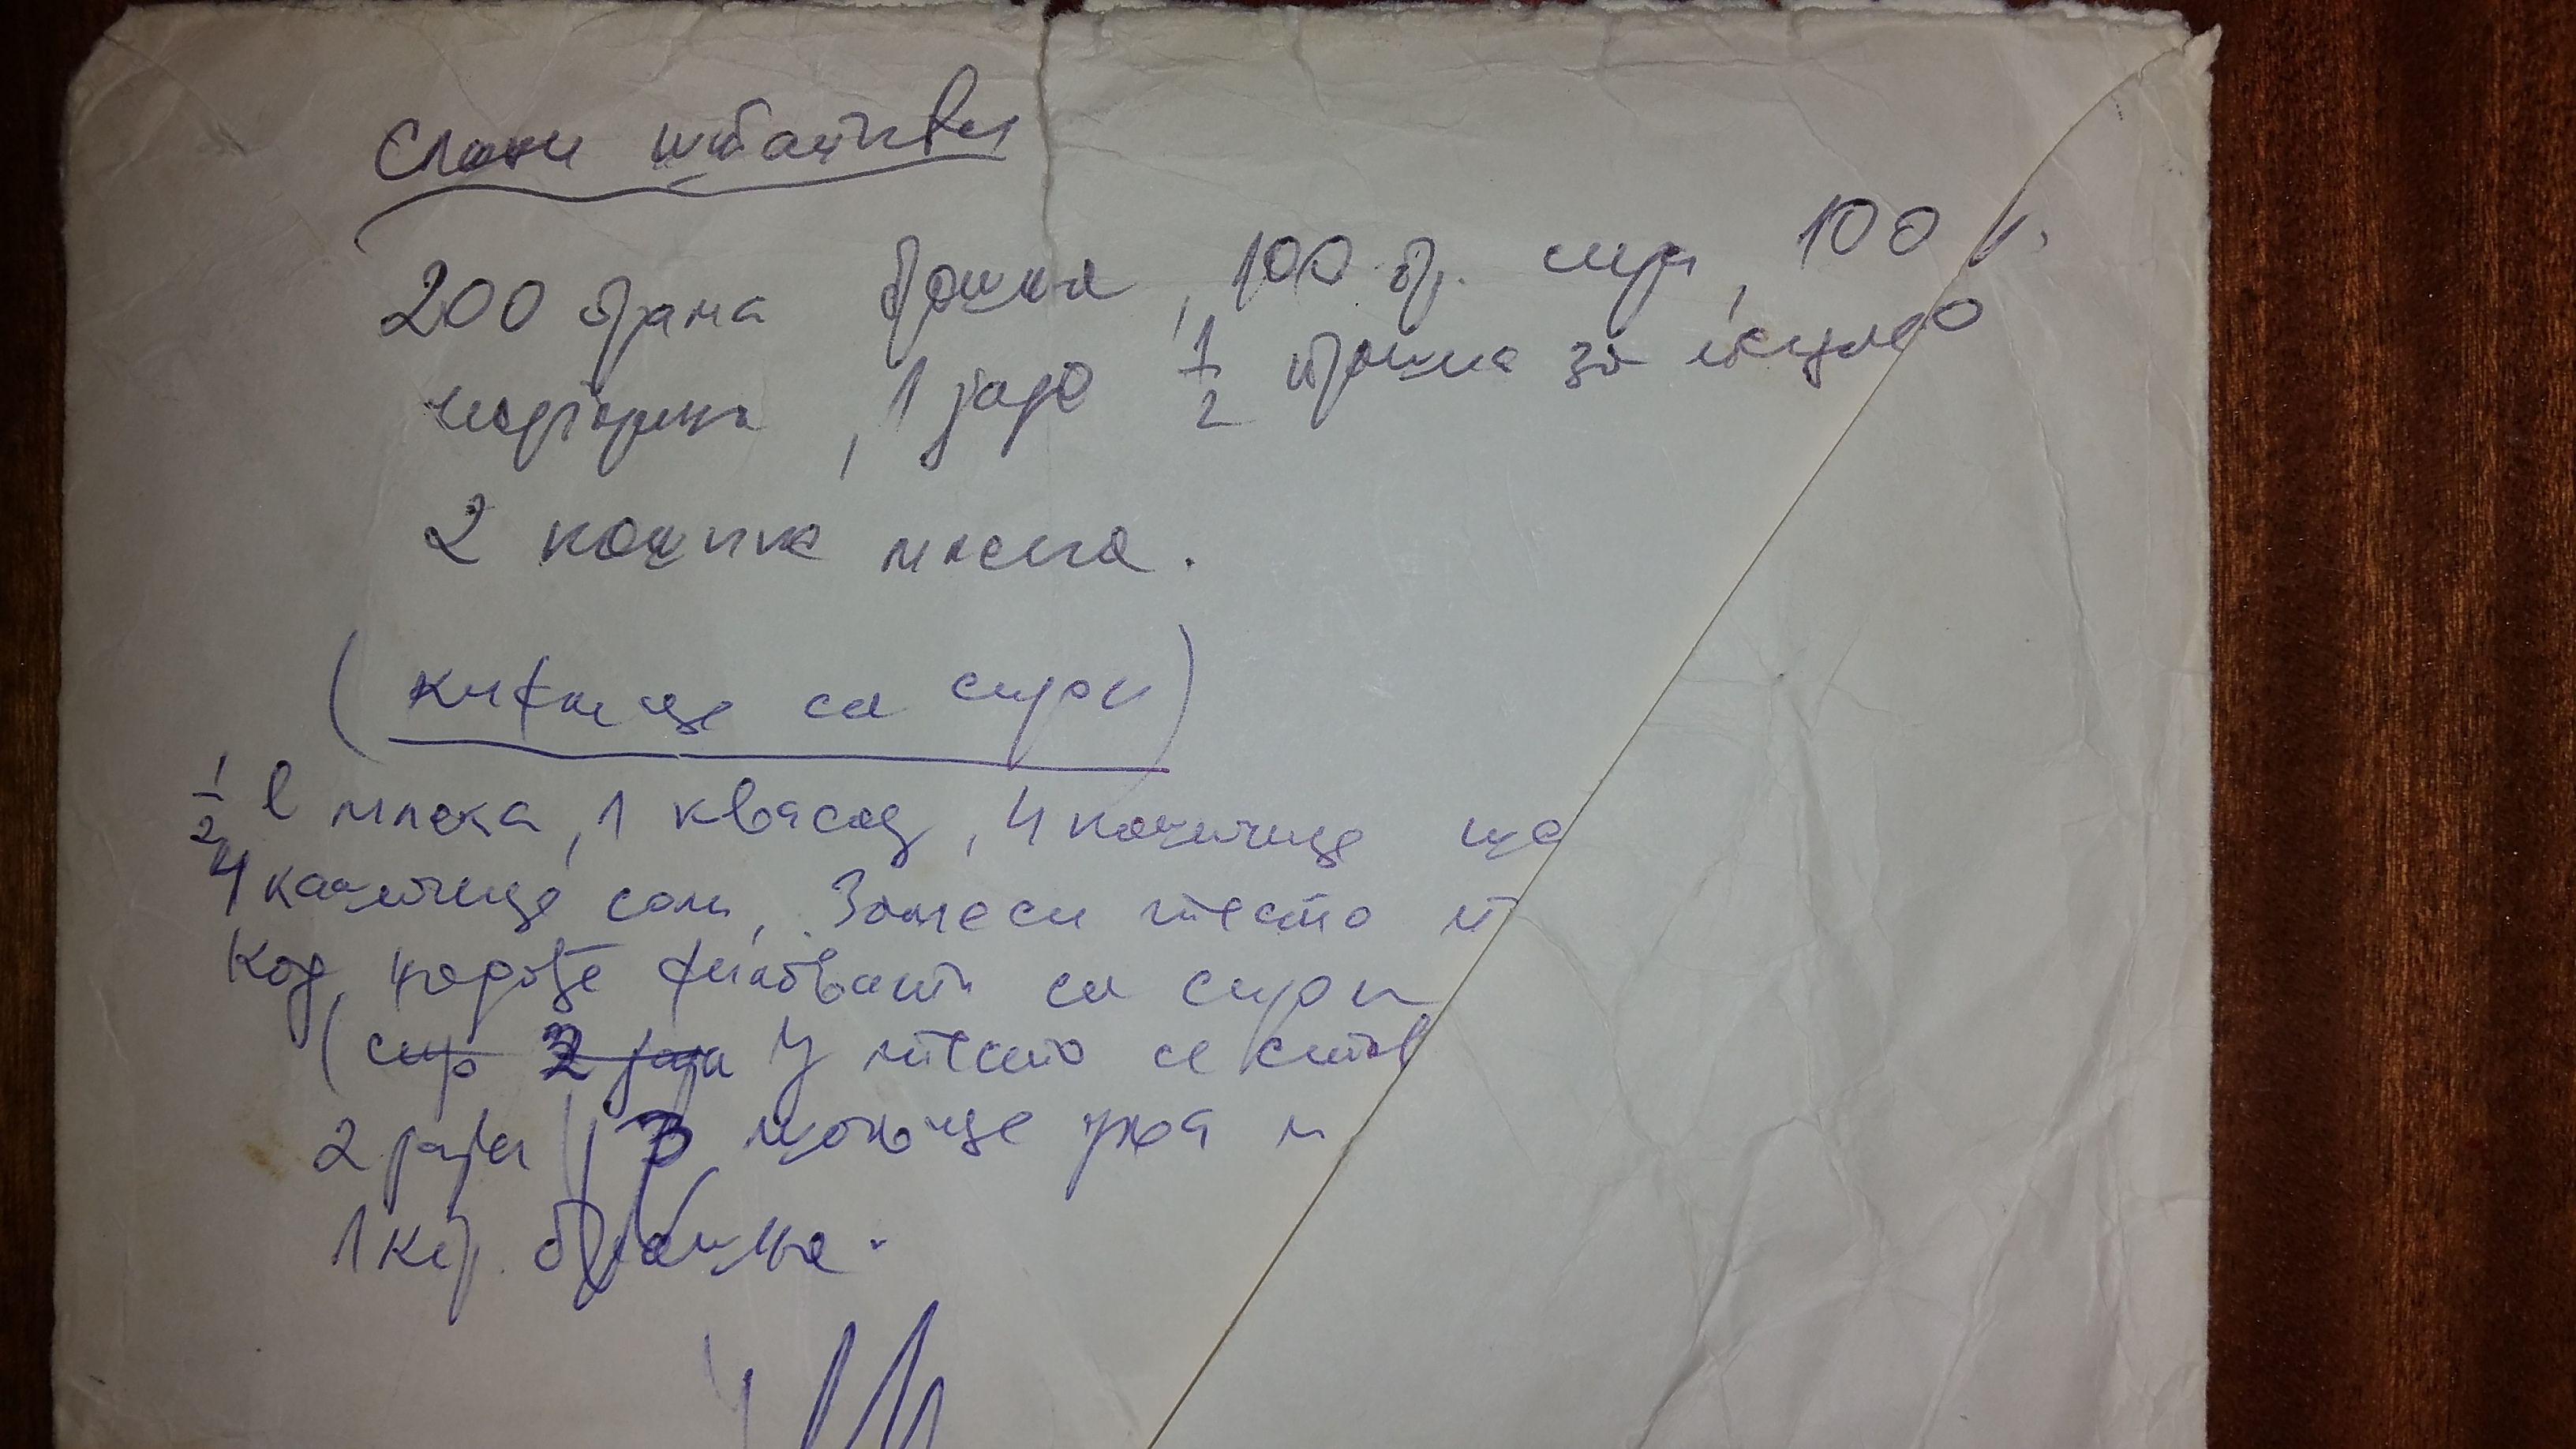 Слани штапићи
200 грама брашна, 100 гр. сира, 100 г.
маргарина, 1 јаје 1/2 прашка за пециво
2 кашике масла.
(кифлице са сиром)
1/2 l млека, 1 квасац, 4 кашичице ше
4 кашичице соли, Замеси тесто и
Код, нарође филовати са сиром
(сир 2 јаја У тесто се став
2 јаја 3 шољице уља и
1 кгр. брашна.